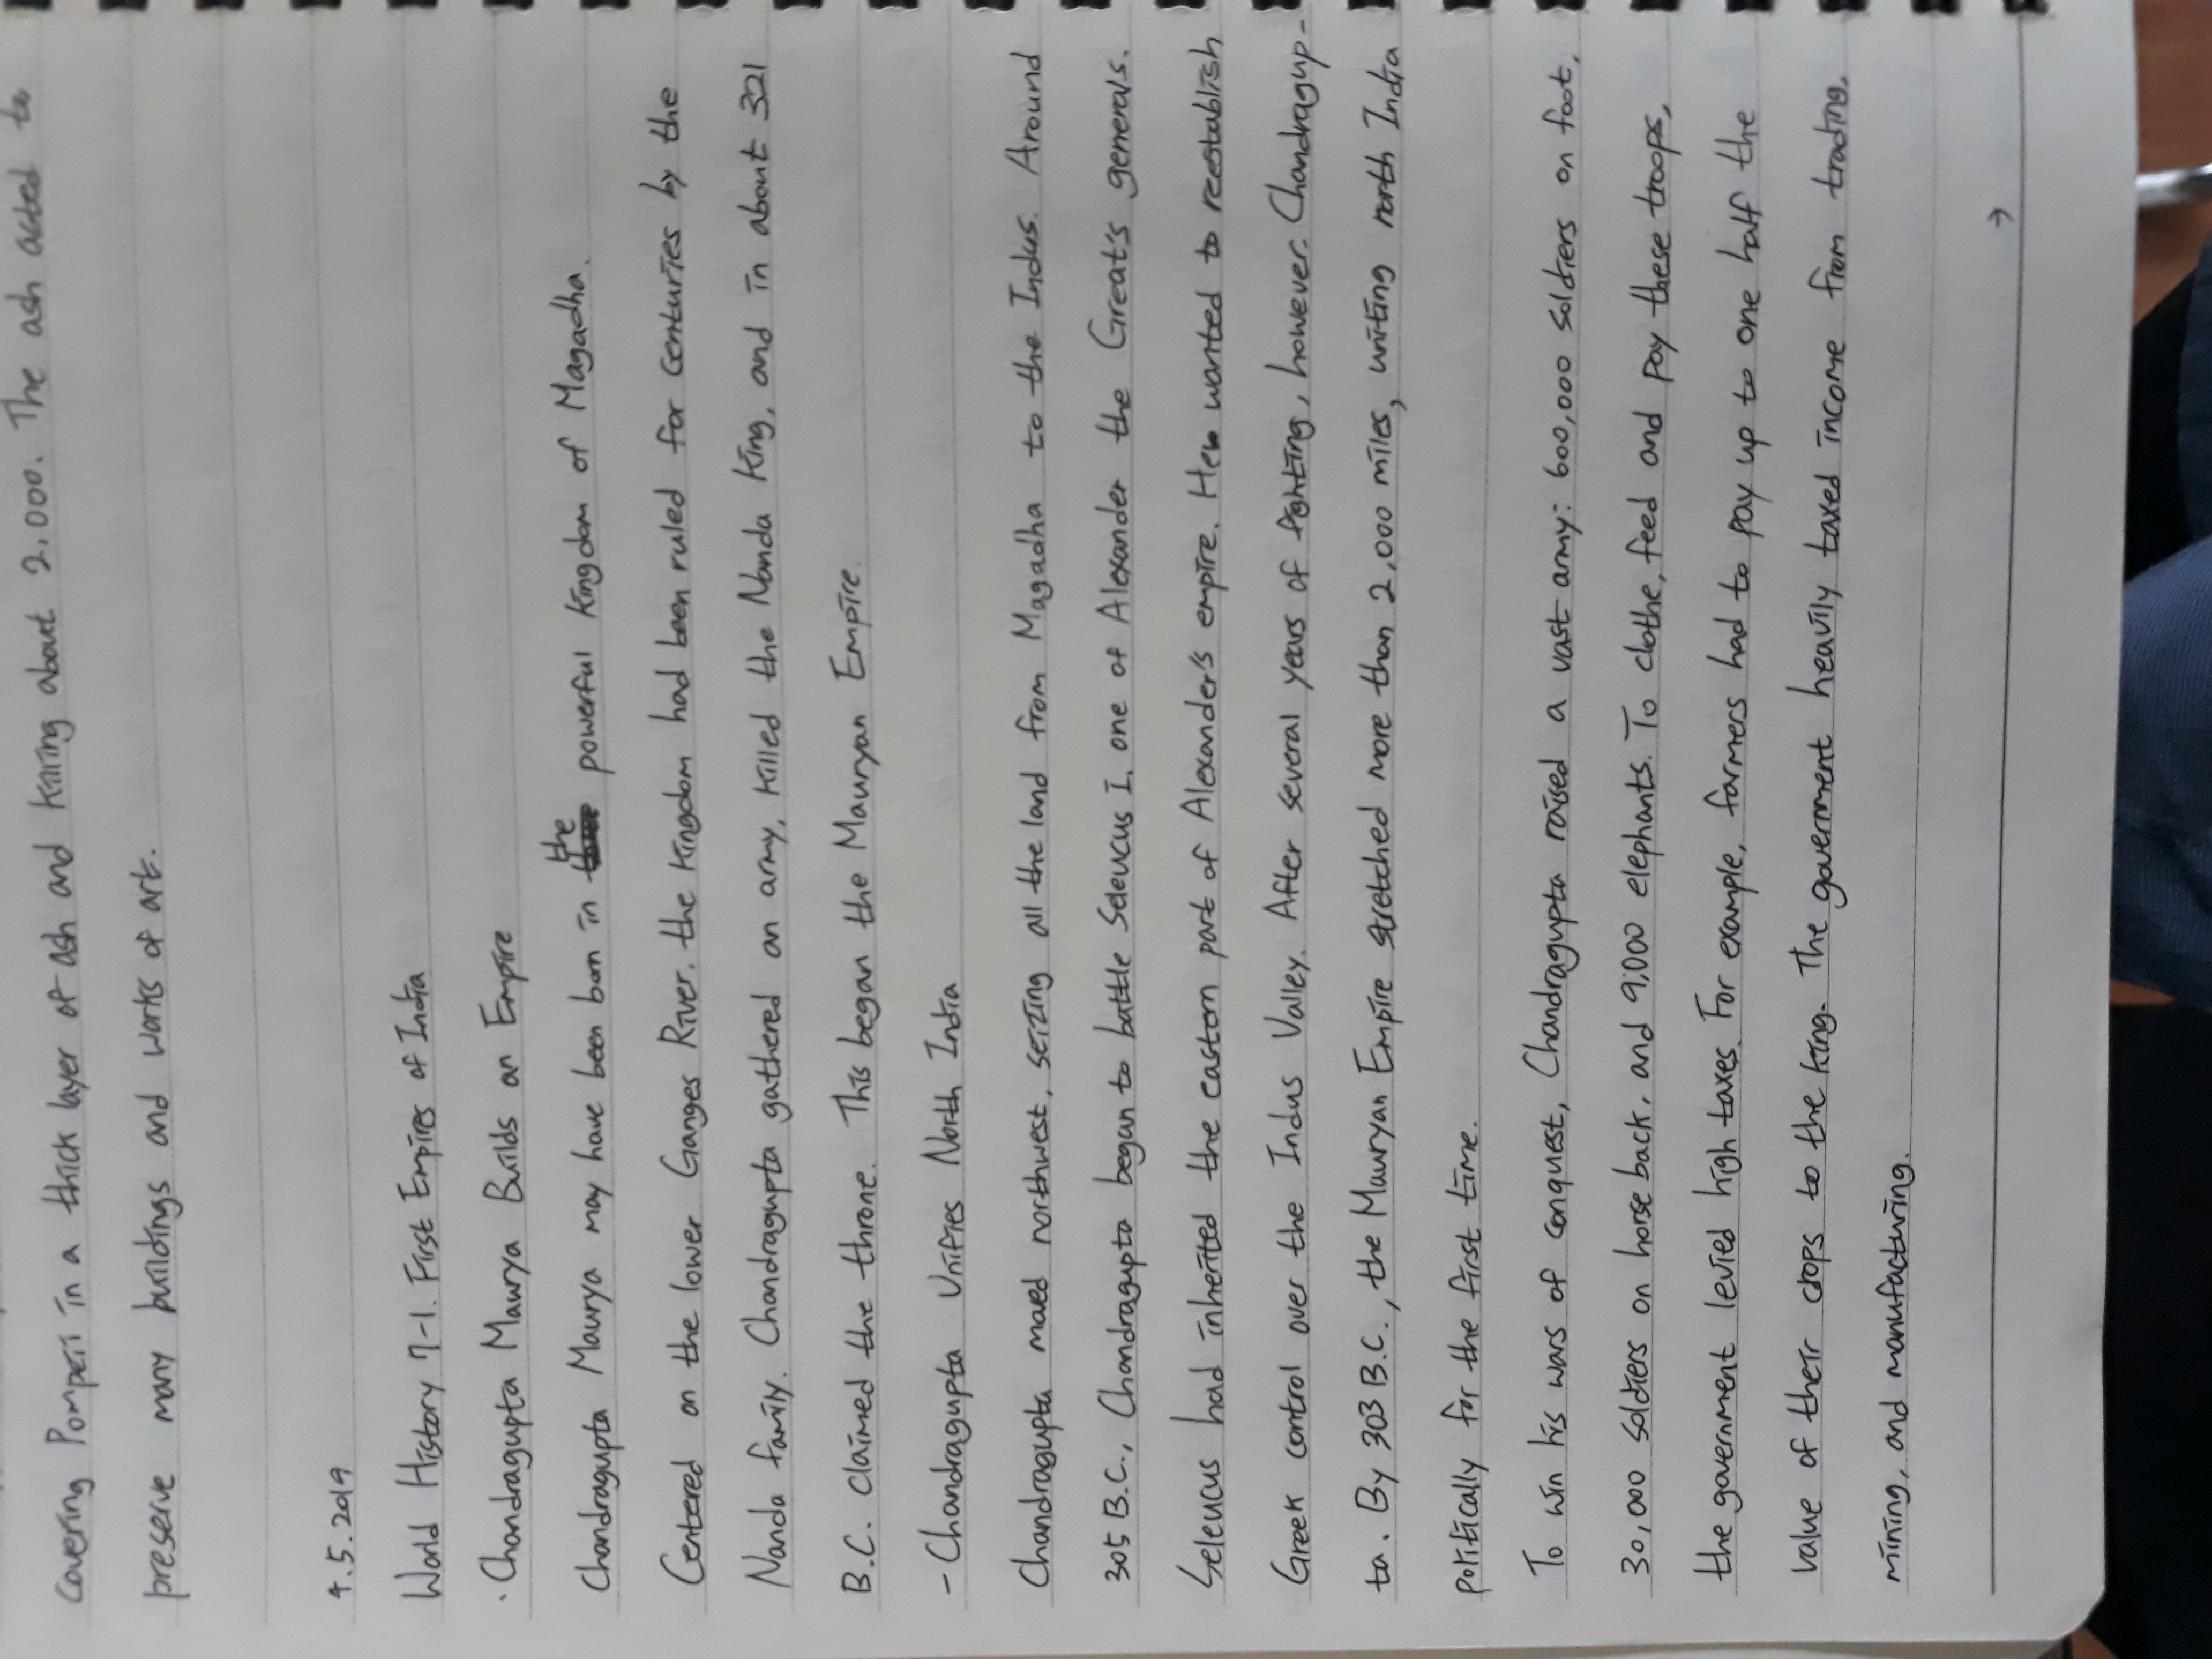 covering Pompeii in a thick layer of ash and killing about 2,000. The ash acted to
preserve many buildings and works of art.
4.5.2019
World History 7-1. First Empires of India
· Chandragupta Maurya Builds an Empire
Chandragupta Maurya may have been born in the powerful kingdom of Magadha.
Centered on the lower Ganges River. the kingdom had been ruled for centuries by the
Nanda family. Chandragupta gathered an army, killed the Nanda king, and in about 321
B.C. claimed the throne. This began the Mauryan Empire.
- Chandragupta Unifies North India
Chandragupta moved northwest, seizing all the land from Magadha to the Indus. Around
305 B.C., Chandragupta began to battle Seleucus I, one of Alexander the Great's generals.
Seleucus had inherited the eastern part of Alexander's empire. He wanted to reestablish
Greek control over the Indus Valley. After several years of fighting, however. Chandragup-
ta. By 303 B.C., the Mauryan Empire stretched more than 2,000 miles, uniting north India
politically for the first time.
To win his wars of conquest, Chandragupta raised a vast army: 600,000 soldiers on foot,
30,000 soldiers on horse back, and 9,000 elephants. To clothe, feed and pay these troops,
the government levied high taxes. For example, farmers had to pay up to one half the
value of their crops to the king. The government heavily taxed income from trading,
mining, and manufacturing.
→